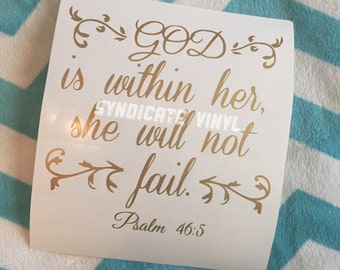 GOD
is within her,
SYNDICATE VINYL
she will not
fail.
Psalm 46:5